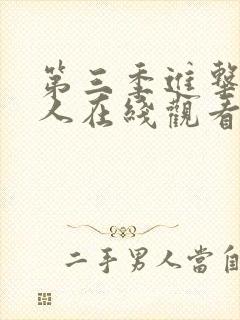 第三季進擊
人在綫觀看
二手男人當自